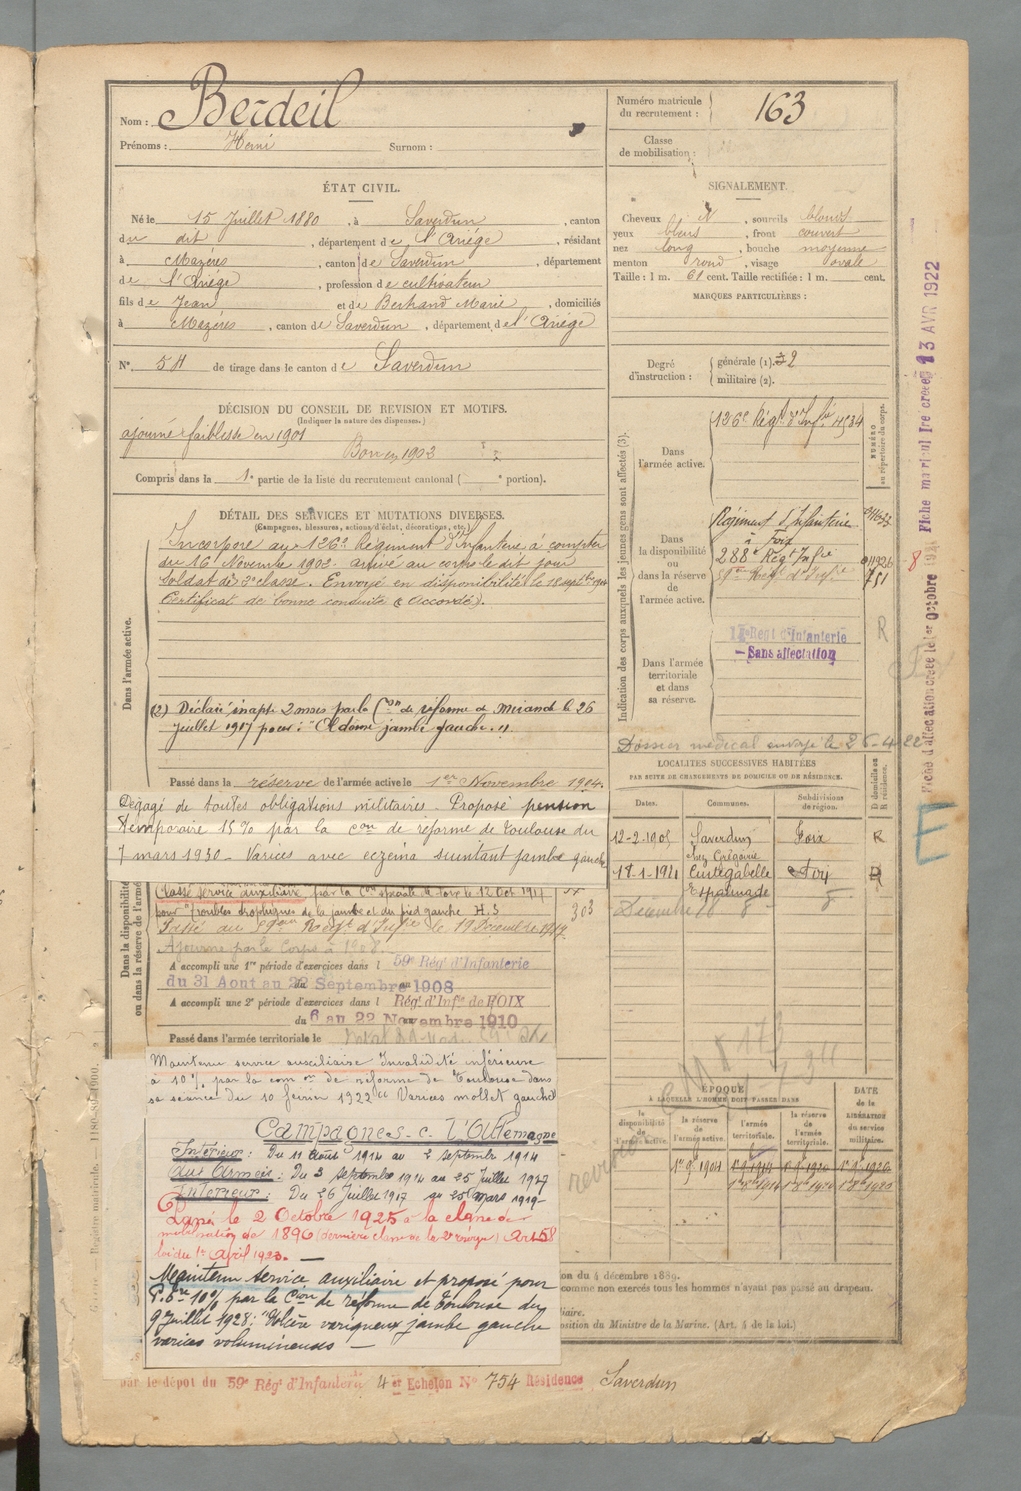 Nom : Berdeil
Prénoms : Henri Surnom :
Numéro matricule du recrutement : 163
Classe de mobilisation :
ÉTAT CIVIL.
Né le 15 Juillet 1880, à Saverdun, canton
du dit, département de l'Ariége, résidant
à Mazères, canton de Saverdun, département
de l'Ariége, profession de cultivateur
fils de Jean et de Bertrand Marie, domiciliés
à Mazéres, canton de Saverdun, département de l'Ariége
N° 54 de tirage dans le canton de Saverdun
SIGNALEMENT.
Cheveux N, sourcils blonds
yeux bleus, front couvert
nez long, bouche moyenne
menton rond, visage ovale
Taille : 1 m. 61 cent. Taille rectifiée : 1 m. cent.
MARQUES PARTICULIÈRES :
Degré d'instruction : générale (1). 2
militaire (2).
DÉCISION DU CONSEIL DE REVISION ET MOTIFS.
(Indiquer la nature des dispenses.)
ajourné faiblesse en 1901
Bon en 1902
Compris dans la 1e partie de la liste du recrutement cantonal ( e portion).
DÉTAIL DES SERVICES ET MUTATIONS DIVERSES.
(Campagnes, blessures, actions d'éclat, décorations, etc.)
Dans l'armée active.
Incorporé au 126e Régiment d'Infanterie à compter
du 16 Novembre 1902. arrivé au corps le dit jour
soldat de 2e classe. Envoyé en disponibilité le 18 septbre 1904
Certificat de bonne conduite "Accordé".
(2) Déclaré inapte 2 mois par la Con de réforme de Mirande le 26
Juillet 1917 pour : "Œdème jambe gauche."
Passé dans la réserve de l'armée active le 1er Novembre 1904.
Dégagé de toutes obligations militaires. Proposé pension
temporaire 15% par la con de réforme de Toulouse du
7 mars 1930 - Varices avec eczéma suintant jambe gauche
Dans la disponibilité ou dans la réserve de l'armée
Classé service auxiliaire par la Con spéciale de Foix le 12 Oct 1917
pour Troubles trophiques de la jambe et du pied gauche H.S
Passé au 59eme Regt d'Infie le 19 Décembre
303
Ajourné par le Corps à 1908
A accompli une 1re période d'exercices dans l 59e Régt d'Infanterie
du 31 Aout au 22 Septembre 1908
A accompli une 2e période d'exercices dans l Régt d'Infie de FOIX
du 6 au 22 Novembre 1910
Passé dans l'armée territoriale le
Maintenu service auxiliaire Invalidité inférieure
à 10% par la com on de réforme de Toulouse dans
sa séance du 10 fevrier 1922 "Varices mollet gauche"
Campagnes c. l'Allemagne
Intérieur : Du 11 août 1914 au 2 septembre 1914
Aux Armées : Du 3 septembre 1914 au 25 juillet 1917
Intérieur : Du 26 Juillet 1917 au 25 mars 1919
Passé le 2 Octobre 1925 à la classe de
mobilisation de 1896 (dernière classe de la 2e réserve) Art 58
loi du 1er Avril 1923.
Maintenu service auxiliaire et proposé pour
P. 10% par la Con de réforme de Toulouse du
9 Juillet 1928 : "Ulcère variqueux jambe gauche
varices volumineuses
par le dépôt du 59e Régt d'Infanterie 4er Echelon N° 754 Résidence Saverdun
Indication des corps auxquels les jeunes gens sont affectés (3).
NUMÉRO au répertoire du corps.
Dans l'armée active. 126e Régt d'Infie 4534
Dans la disponibilité ou dans la réserve de l'armée active.
Régiment d'Infanterie
à Foix
288e Regt Infie
59e Regt d'Infie 751
Dans l'armée territoriale et dans sa réserve.
Regt d'Infanterie
Sans affectation
R
Dossier médical envoyé le 26-4-22
LOCALITÉS SUCCESSIVES HABITÉES
PAR SUITE DE CHANGEMENTS DE DOMICILE OU DE RÉSIDENCE.
Dates. Communes. Subdivisions de région. D domicile ou R résidence.
12-2-1905 Saverdun Foix R
18-1-1921 Cintegabelle
ÉPOQUE
À LAQUELLE L'HOMME DOIT PASSER DANS
DATE de la LIBÉRATION du service militaire.
la disponibilité de l'armée active.
la réserve de l'armée active.
l'armée territoriale.
la réserve de l'armée territoriale.
on du 4 décembre 1889.
comme non exercés tous les hommes n'ayant pas passé au drapeau.
iaire.
position du Ministre de la Marine. (Art. 4 de la loi.)
13 AVR 1922
E